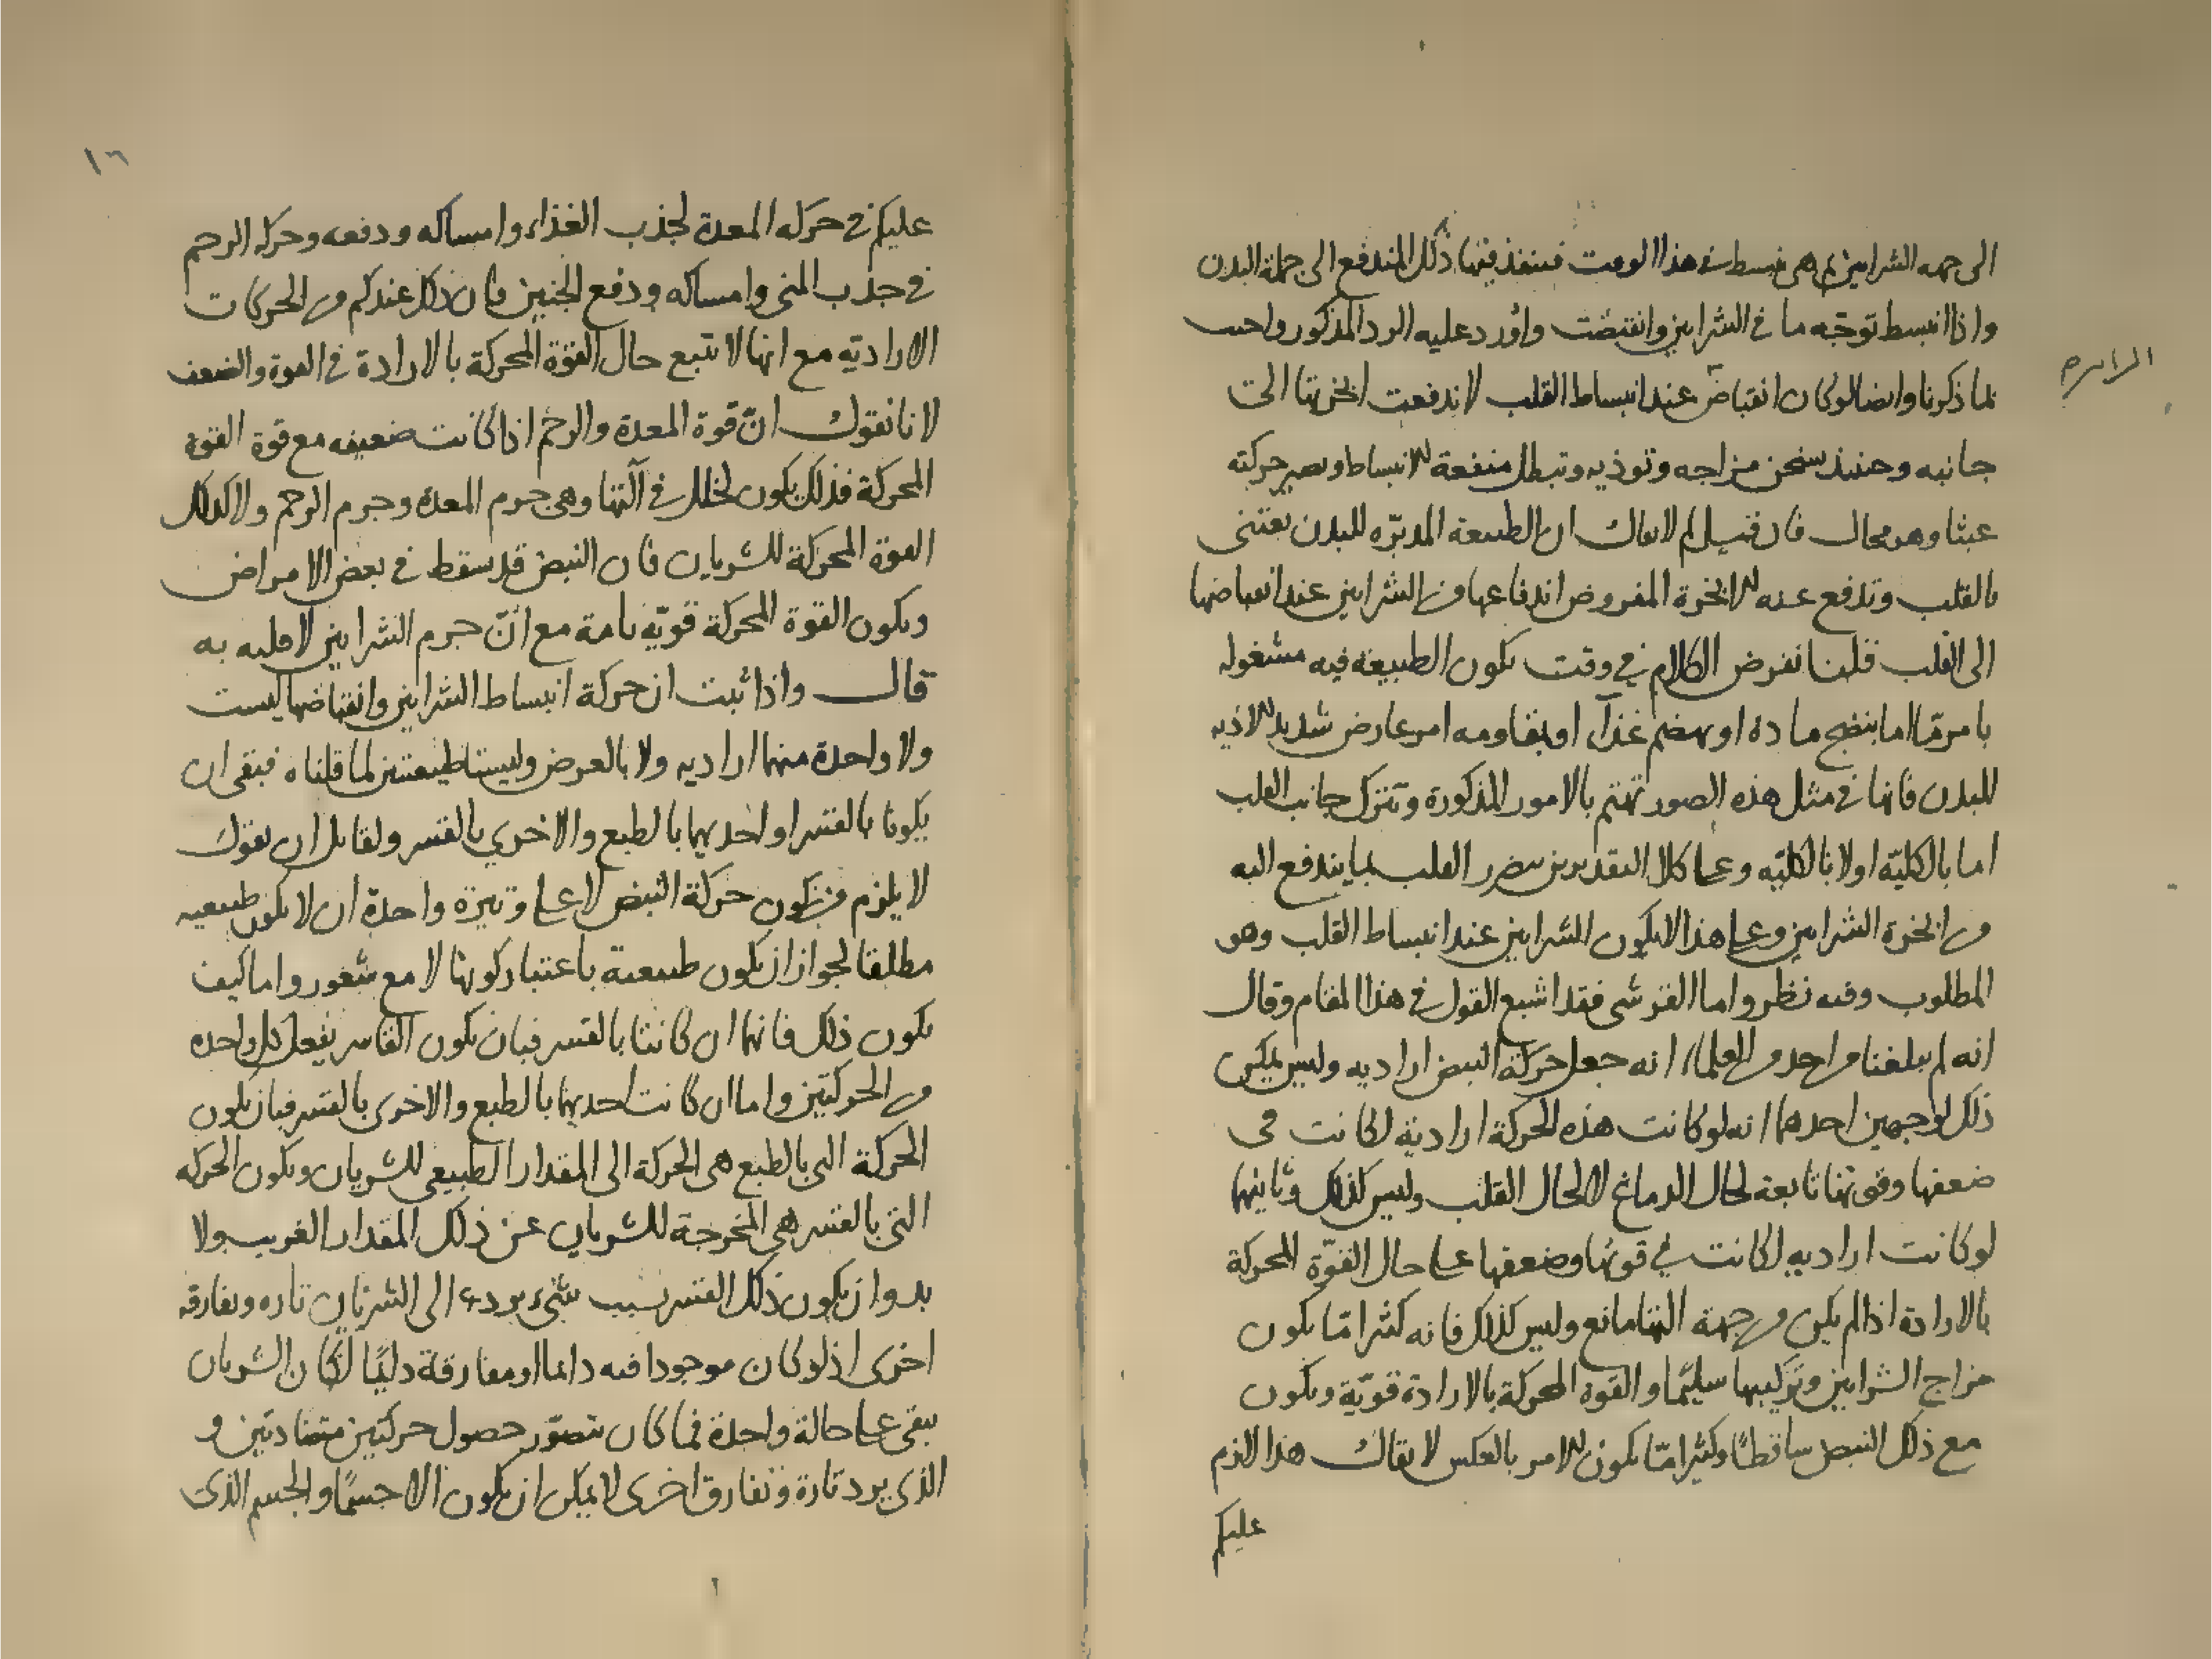 الى جهه الشرايين ثم هى تنبسط فى هذا الوقت فينفذ فيها ذلك المندفع الى جملة البدن
واذا انبسط توجّه ما فى الشرايين وانقبضت واورد عليه الرد المذكور واجيب
بما ذكرنا وايضا لو كان انقباض عند انبساط القلب لاندفعت ابخرتها الى
جانبه وحينئذ يسخن مزاجه وتوذيه وتبطل منفعة الانبساط ويصير حركته
عبثا وهو محال فان قيل لم لا يقال ان الطبيعة المدبّره للبدن يعتنى
بالقلب وتدفع عنه الابخرة المفروض اندفاعها من الشرايين عند انقباضها
الى القلب قلنا نفرض الكلام فى وقت يكون الطبيعة فيه مشغوله
بامر مّا اما بنضج مادة او بهضم غذآ او بمقاومه امر عارض شديد الاذيه
للبدن فانها فى مثل هذه الصور تهتم بالامور المذكورة وتترك جانب القلب
اما بالكليّه او لا بالكليّه وعلى كلا التقديرين يتضرر القلب بما يندفع اليه
من ابخرة الشرايين وعلى هذا لا يكون للشرايين عند انبساط القلب وهو
المطلوب وفيه نظر واما القرشى فقد اشبع القول فى هذا المقام وقال
انه لم يبلغنا من احد من العلماء انه جعل حركة النبض اراديه وليس يمكن
ذلك لوجهين احدهما انه لو كانت هذه الحركة اراديّة لكانت فى
ضعفها وقوتها تابعة لحال الدماغ لا لحال القلب وليس كذلك وثانيهما
لو كانت اراديه لكانت فى قوتها وضعفها على حال القوّة المحركة
بالارادة اذا لم يكن من جهة التها مانع وليس كذلك فانه كثيرا مّا يكون
مزاج الشرايين وتركيبها سليمًا والقوة المحركة بالارادة قويّة ويكون
مع ذلك النبض ساقطًا وكثيرا مّا يكون الامر بالعكس لا يقال هذا لازم
عليكم
١٦
عليكم فى حركه المعدة لجذب الغذاء وامساكه ودفعه وحركه الرحم
فى جذب المنى وامساكه ودفع الجنين فان ذلك عندكم من الحركات
الاراديّه مع انها لا تتبع حال القوّة المحركة بالارادة فى القوة والضعف
لانا نقول انّ قوة المعدة والرحم اذا كانت ضعيفه مع قوة القوة
المحركة فذلك يكون لخلل فى آلتها وهى جرم المعدة وجرم الرحم ولا كذلك
القوة المحركة للشريان فان النبض قد سقط فى بعض الامراض
ويكون القوة المحركة قويّه تامة مع انّ جرم الشرايين لا به
قال واذا ثبت ان حركة انبساط الشرايين وانقباضها ليست
ولا واحدة منهما اراديه ولا بالعرض وليستا طبيعتين لما قلناه فبقى ان
يكونا بالقسر او احديهما بالطبع والاخرى بالقسر ولقايل ان يقول
لا يلزم من كون حركة النبض لا على وتيرة واحدة ان لا يكون طبيعيه
مطلقا لجواز ان يكون طبيعية باعتبار كونها لا مع شعور واما كيف
يكون ذلك فانهما ان كانتا بالقسر فبان يكون القاسر يفعل كل واحده
من الحركتين واما ان كانت احديهما بالطبع والاخرى بالقسر فبان يكون
الحركة التى بالطبع هى الحركة الى المقدار الطبيعى للشريان ويكون الحركه
التى بالقسر هى المخرجة للشريان عن ذلك المقدار الغريب ولا
بد وان يكون ذلك القسر بسبب شىء يرد الى الشريان تاره ويفارقه
اخرى اذ لو كان موجودا فيه دايما او مفارقة دايمًا لكان الشريان
يبقى على حالة واحدة فما كان يتصوّر حصول حركتين متضادتين و
الذى يرد تارة وتفارق اخرى لا يمكن ان يكون الا جسمًا والجسم الذى